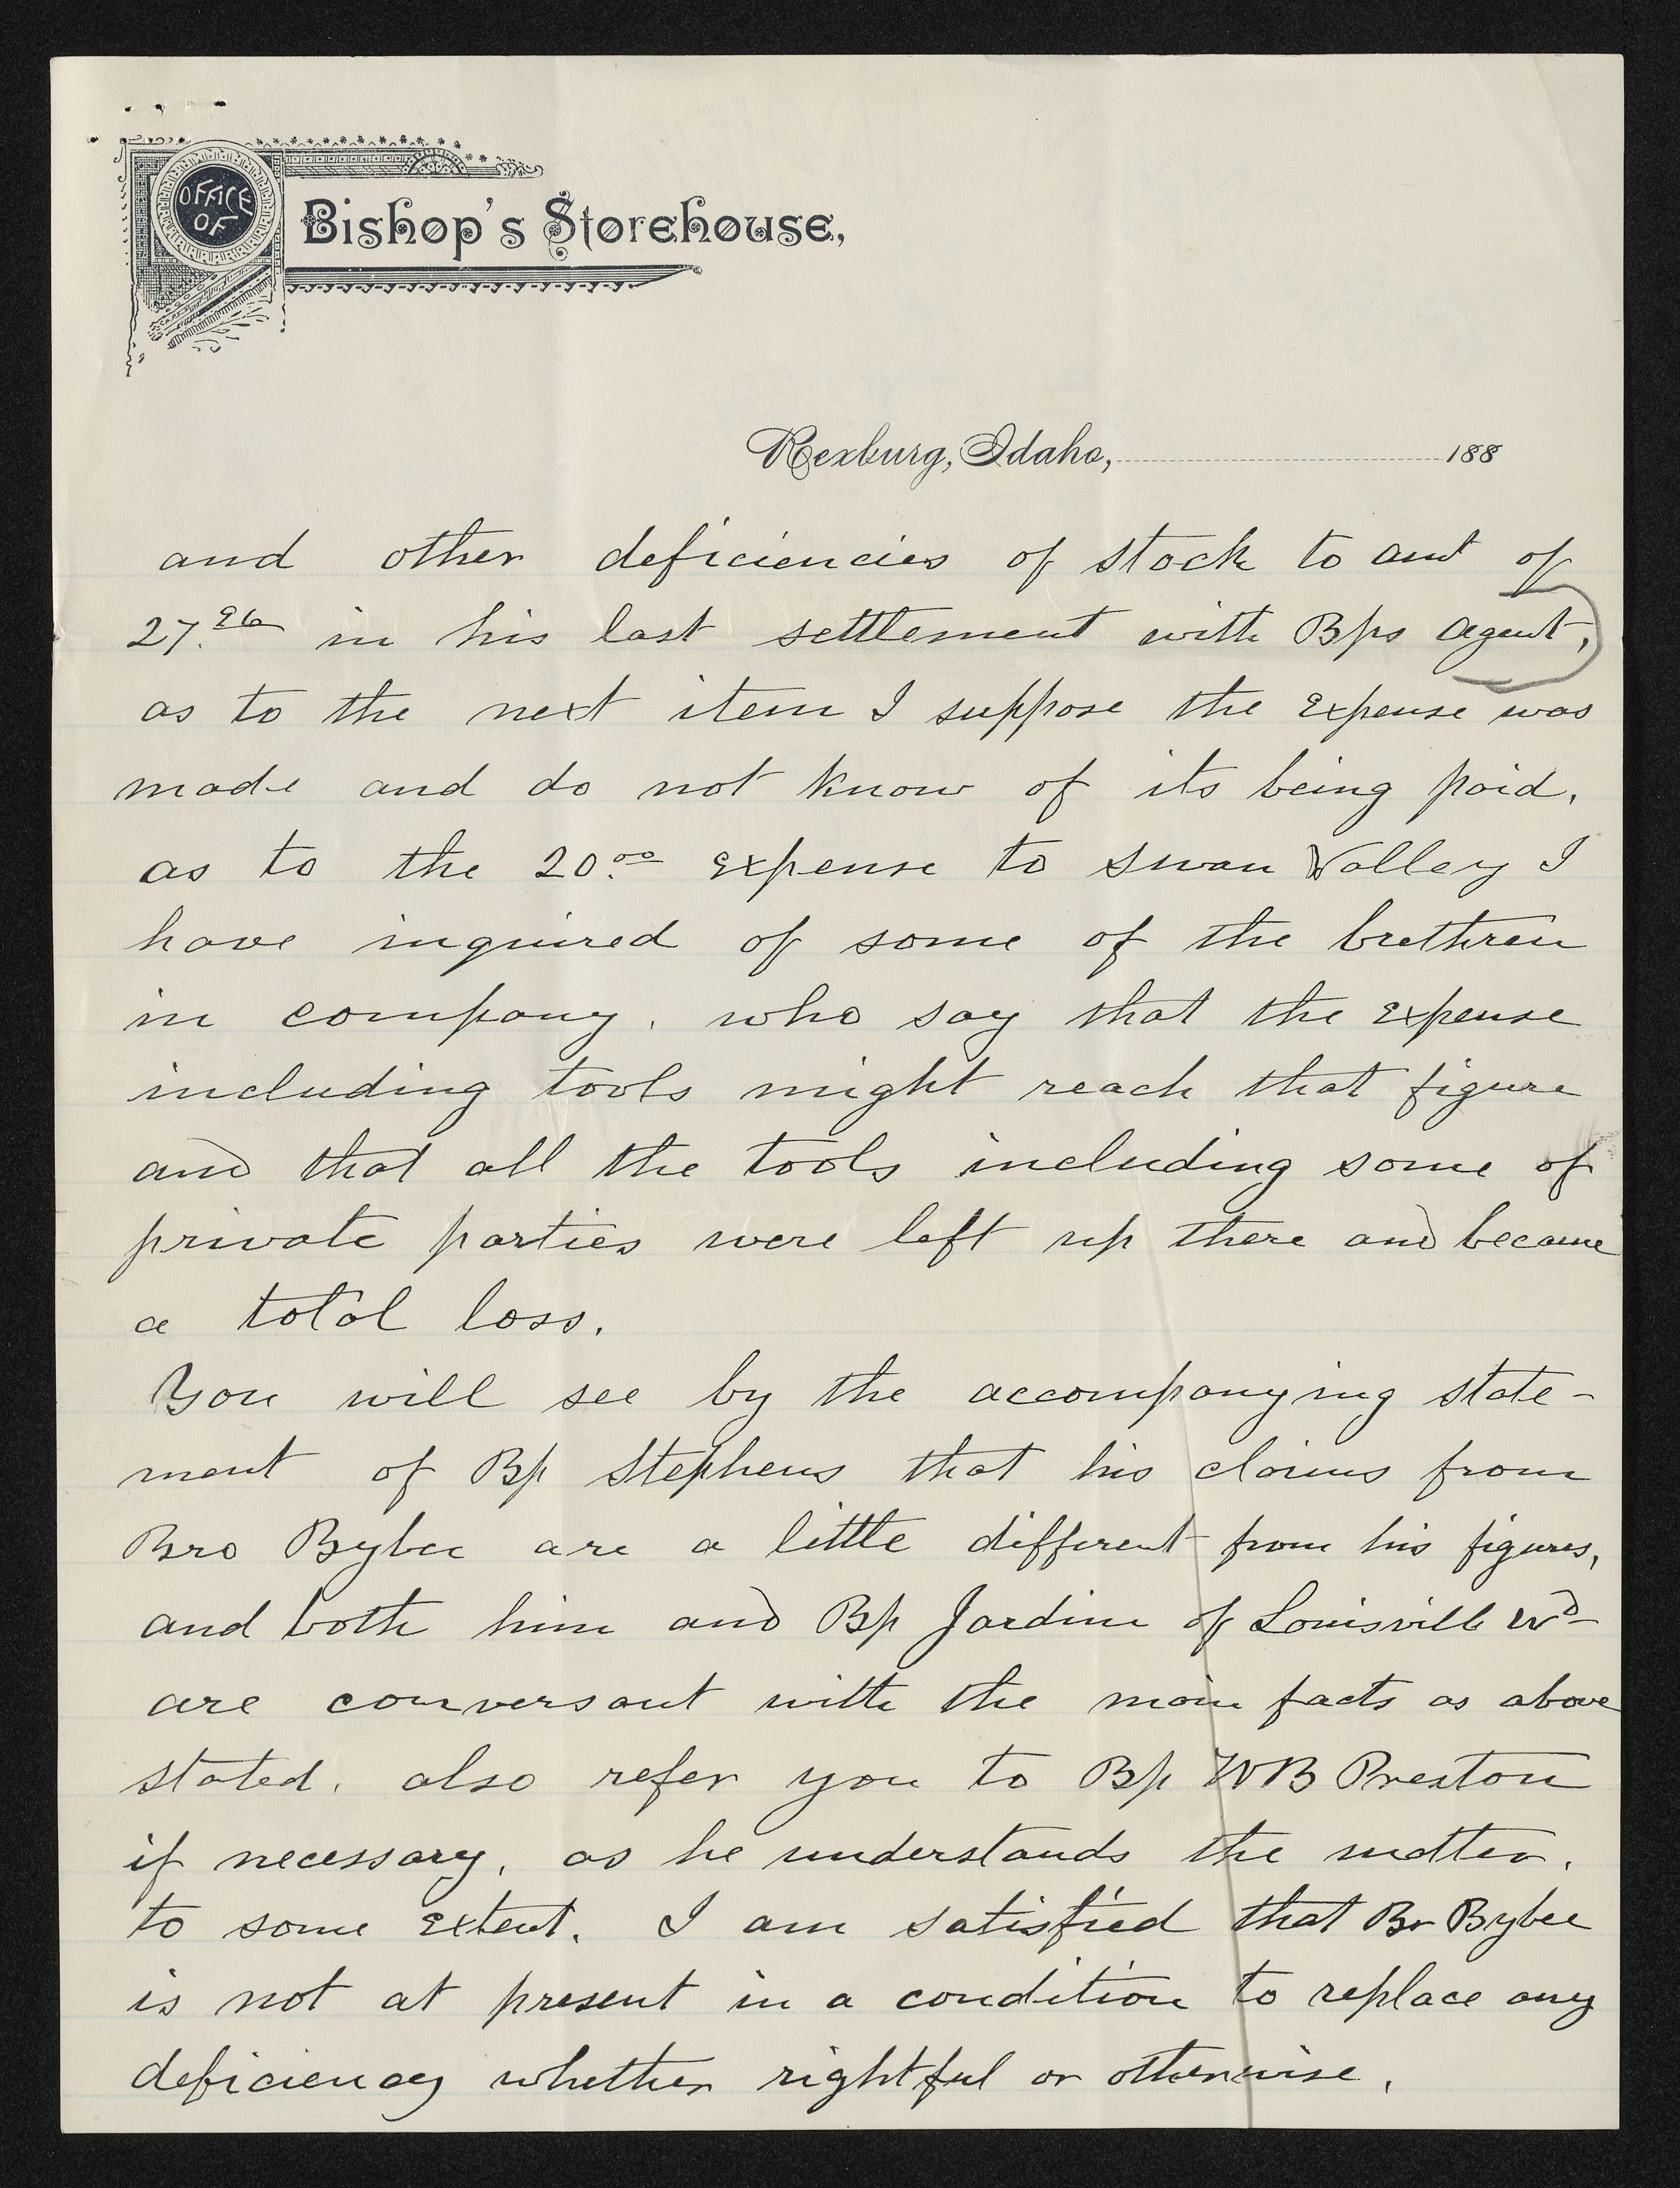 OFFICE
OF
Bishop's Storehouse,
Rexburg, Idaho, 188
and other deficiencies of stock to amt of
27.96 in his last settlement with Bps Agent,
as to the next item I suppose the Expense was
made and do not know of its being paid.
as to the 20.00 Expense to Swan Valley I
have inquired of some of the brethren
in company. who say that the Expense
including tools might reach that figure
and that all the tools including some of
private parties were left up there and became
a total loss.
You will see by the accompanying state-
ment of Bp Stephens that his claims from
Bro Bybee are a little different from his figures,
and both him and Bp Jardine of Louisville Wd
are conversant with the main facts as above
stated. also refer you to Bp WB Preston
if necessary, as he understands the matter.
to some Extent. I am satisfied that Br Bybee
is not at present in a condition to replace any
deficiency whether rightful or otherwise.